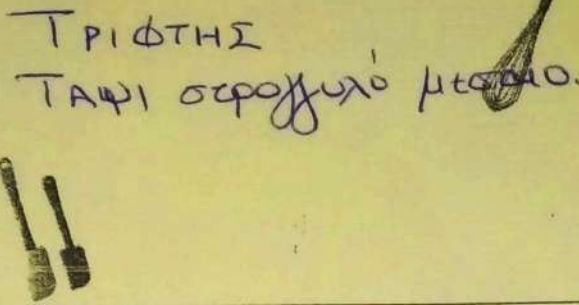 ΤΡΙΦΤΗΣ
ΤΑΨΙ στρογγυλό μεσαιο.